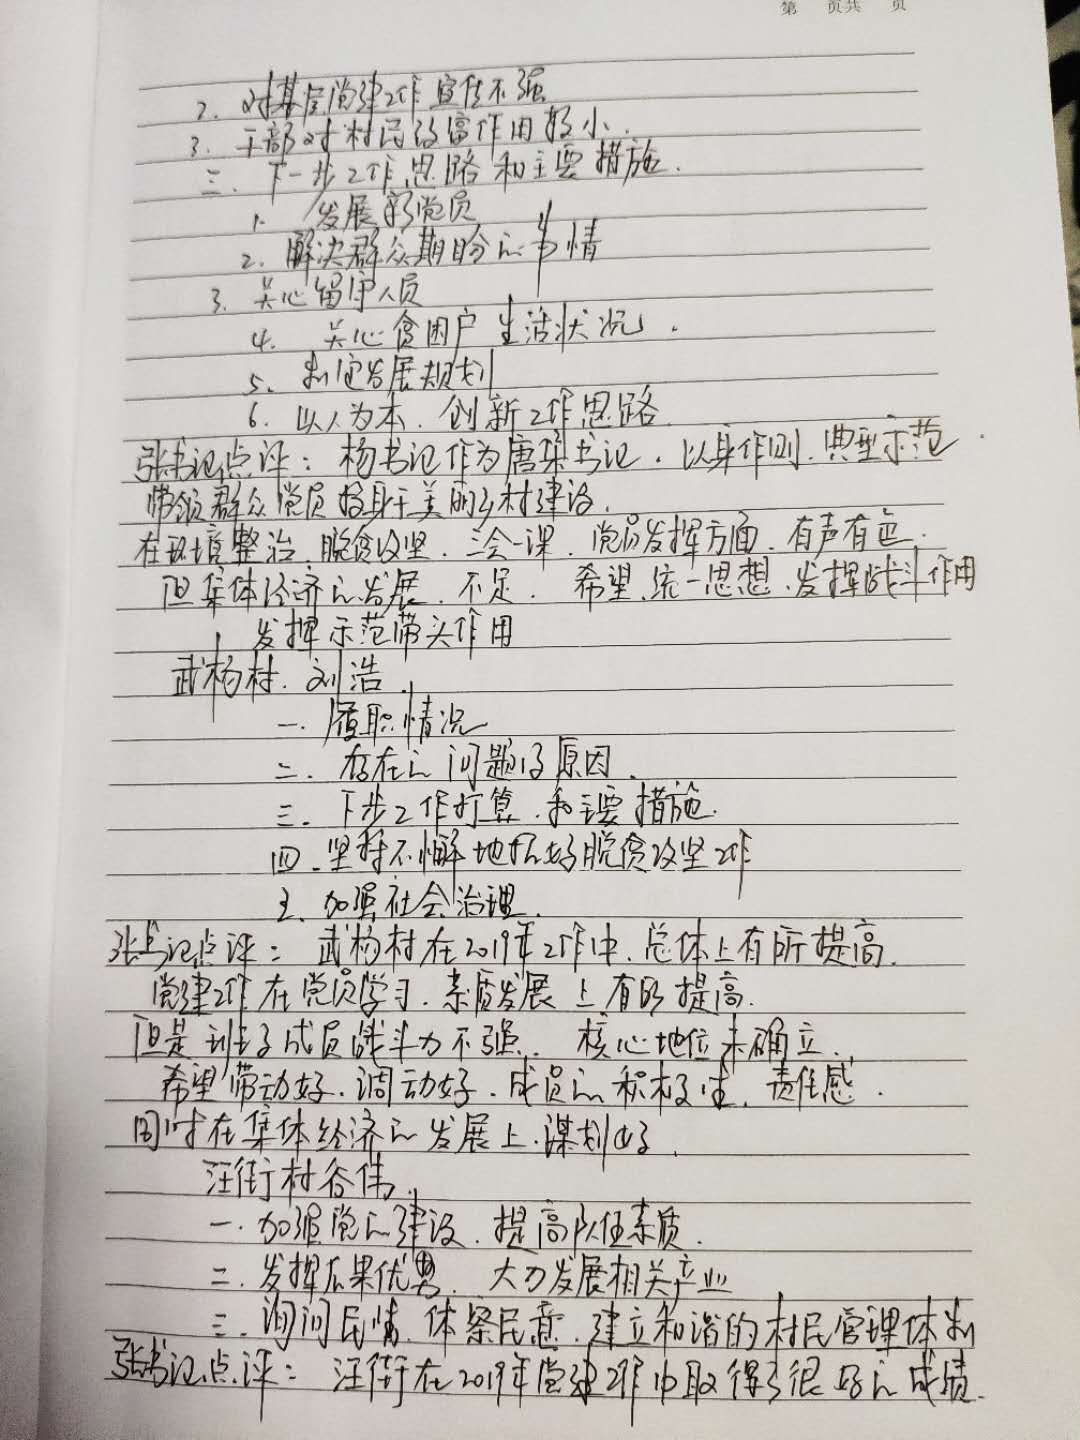 第 页共 页
2. 对基层党建工作宣传不强
3. 干部对村民的富作用较小.
三. 下一步工作思路和主要措施.
1. 发展新党员
2. 解决群众期盼的事情
3. 关心留守人员
4. 关心贫困户生活状况.
5. 制定发展规划
6. 以人为本.创新工作思路
张书记点评: 杨书记作为唐集书记.以身作则.典型示范.
带领群众党员投身于美丽乡村建设.
在环境整治.脱贫攻坚.三会一课.党员发挥方面.有声有色.
但集体经济的发展.不足. 希望.统一思想.发挥战斗作用
发挥示范带头作用
武杨村.刘浩.
一. 履职情况
二. 存在的问题得原因.
三. 下步工作打算.和主要措施.
四.坚持不懈地抓好脱贫攻坚工作
五.加强社会治理.
张书记点评: 武杨村在2019年工作中.总体上有所提高.
党建工作在党员学习.素质发展上有的提高.
但是班子成员战斗力不强. 核心地位未确立.
希望带动好.调动好.成员的积极性.责任感.
同时在集体经济的发展上.谋划好.
汪街村谷伟.
一.加强党的建设.提高队伍素质.
二.发挥瓜果优势. 大力发展相关产业
三.询问民情.体察民意.建立和谐的村民管理体制
张书记点评: 汪街在2019年党建工作中取得了很好的成绩.